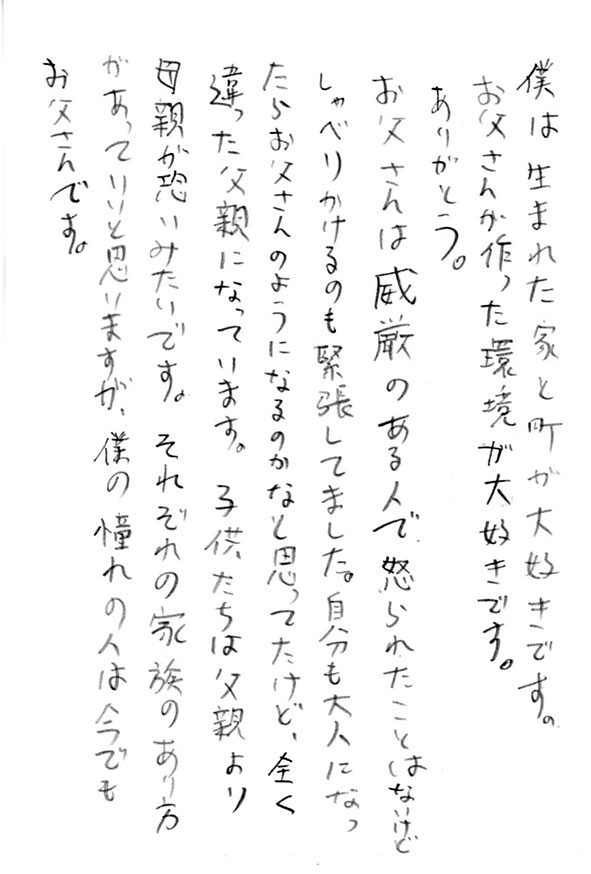 僕は生まれた家と町が大好きです。
お父さんが作った環境が大好きです。
ありがとう。
お父さんは威厳のある人で怒られたことはないけど
しゃべりかけるのも緊張してました。自分も大人になっ
たらお父さんのようになるのかなと思ってたけど、全く
違った父親になっています。子供たちは父親より
母親が恐いみたいです。それぞれの家族のあり方
があっていいと思いますが、僕の憧れの人は今でも
お父さんです。